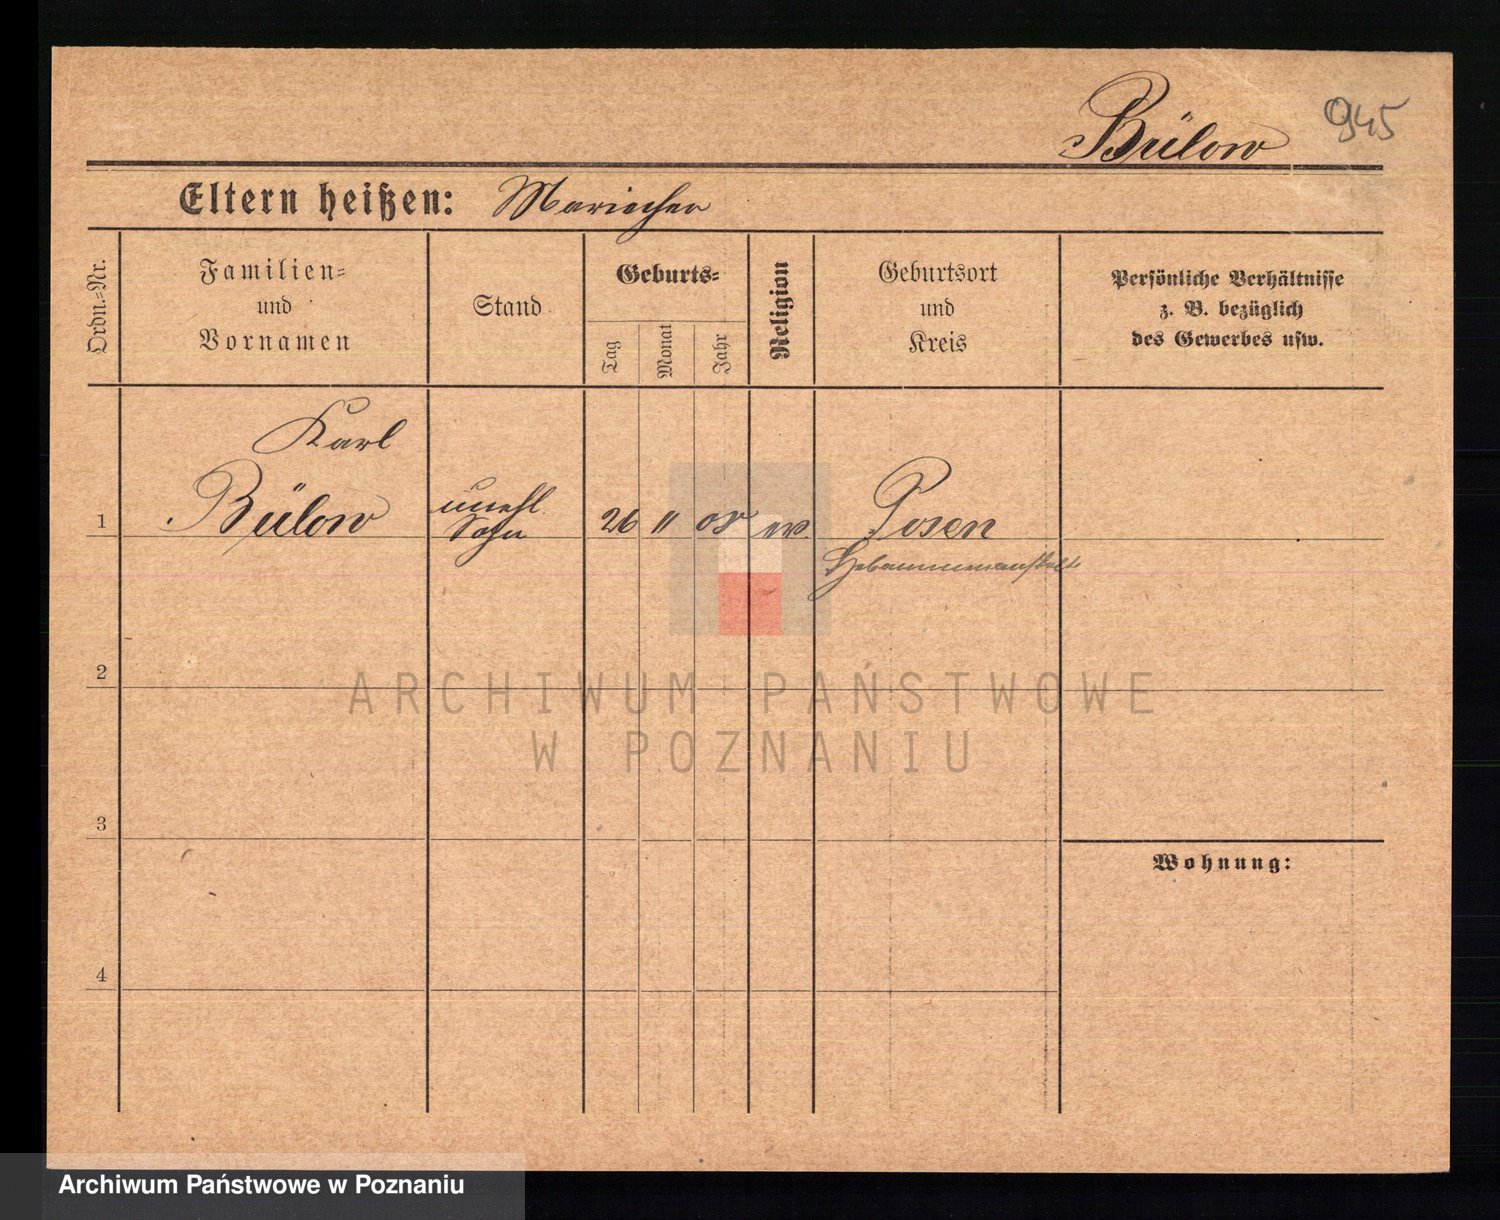 Bülow 945
Eltern heißen: Mariechen
Ordn.-Nr.
Familien-
und
Vornamen
Stand
Geburts-
Tag
Monat
Jahr
Religion
Geburtsort
und
Kreis
Persönliche Verhältnisse
z. B. bezüglich
des Gewerbes usw.
Karl
1 Bülow
unehl.
Sohn
26 11 08 ev. Posen
Hebammenanstalt
2
ARCHIWUM PAŃSTWOWE
W POZNANIU
3
Wohnung:
4
Archiwum Państwowe w Poznaniu